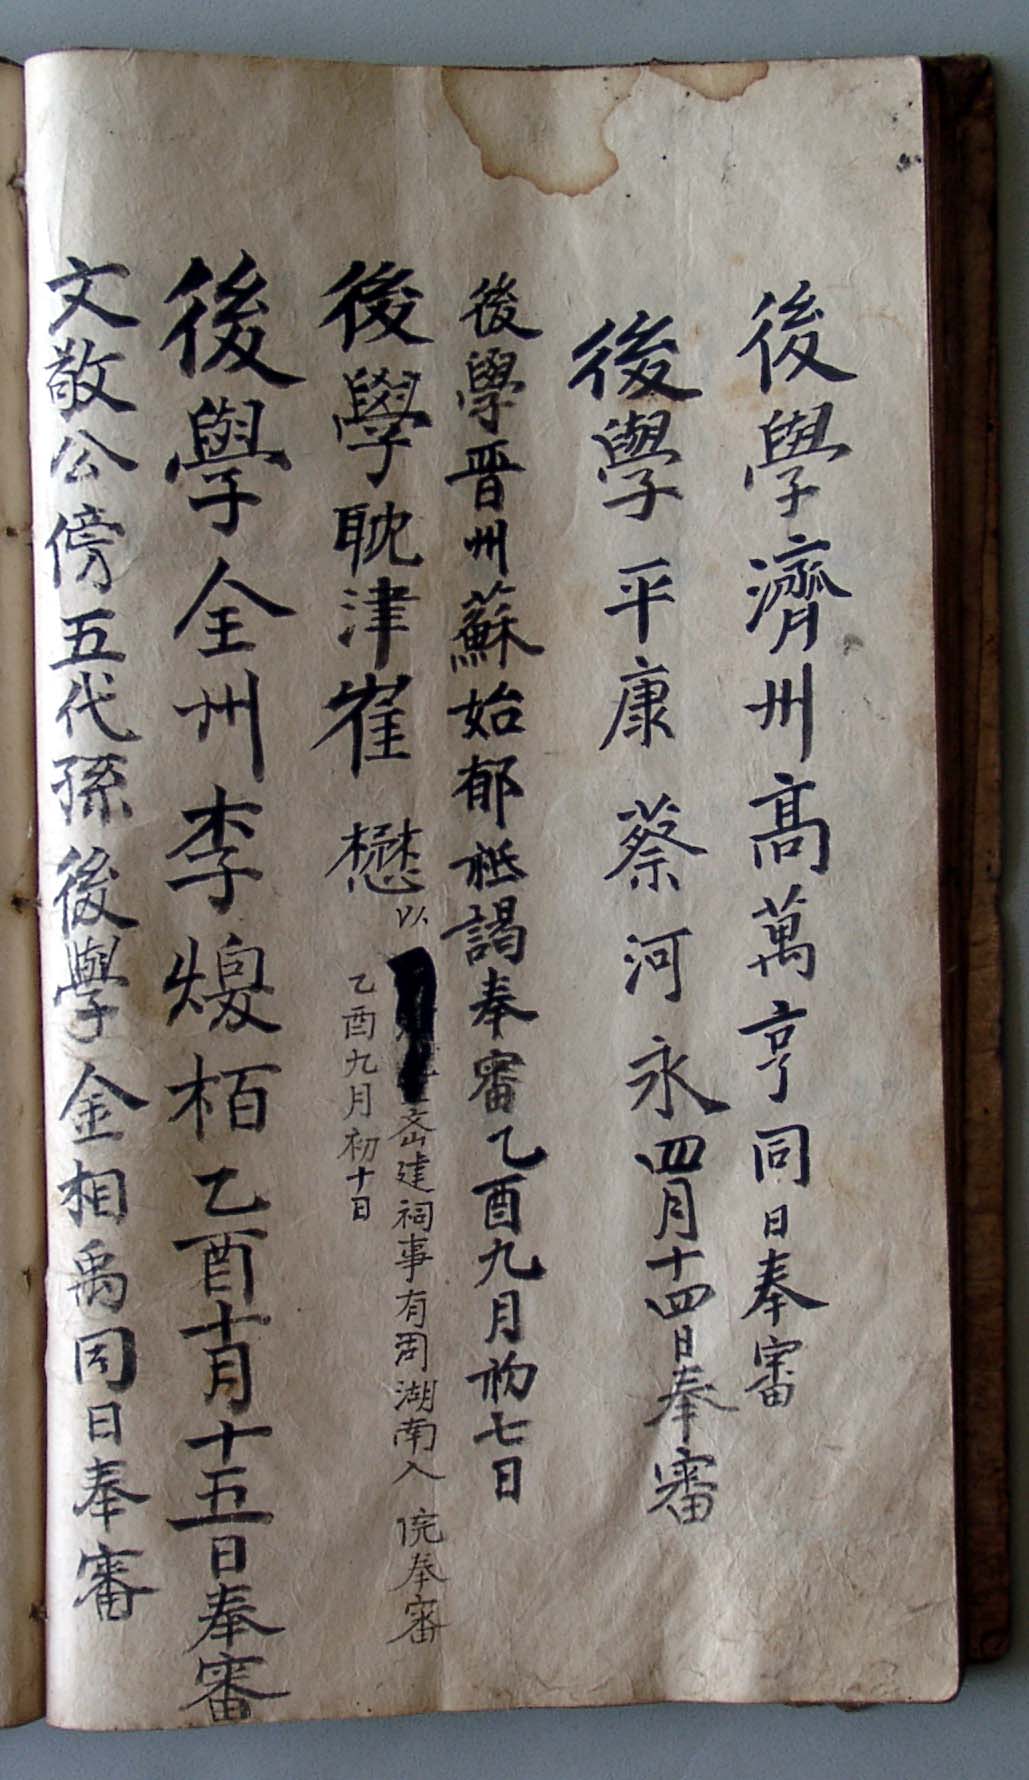 後學濟州高萬亨同日奉審
後學平康蔡河永四月十四日奉審
後學晋州蘇始郁祗謁奉審乙酉九月初七日
後學耽津崔懋
以
建祠事有周湖南入院奉審
乙酉九月初十日
後學全州李煖栢乙酉十月十五日奉審
文敬公傍五代孫後學金相禹同日奉審